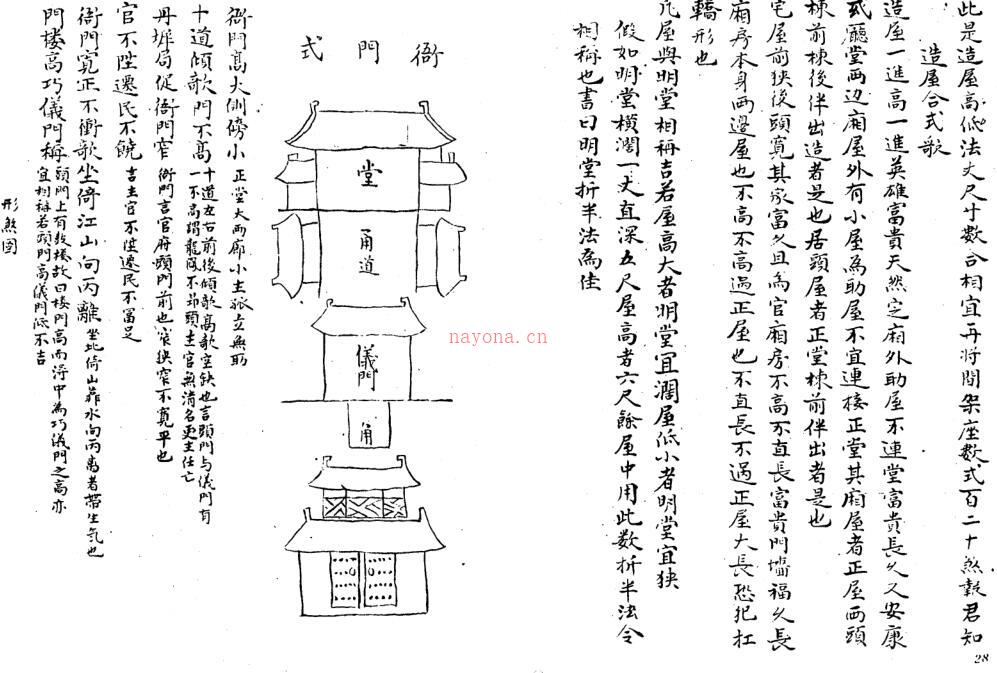 此是造屋高低法丈尺寸数合相宜再将間架座数式百二十煞說君知
造屋合式歌
造屋一進高一進英雄富貴天然定廂外助屋不連堂富貴長久又安康
或廳堂两边廂屋外有小屋為助屋不宜連接正堂其廂屋者正屋两頭
棟前棟後伴出造者是也居頭屋者正堂棟前伴出者是也
宅屋前狹後頭寬其家富久且為官廂房不高不直長富貴門墻福久長
廂房本身两邊屋也不高不高過正屋也不直長不過正屋大長恐犯杠
轎形也
凢屋與明堂相稱吉若屋高大者明堂宜濶屋低小者明堂宜狹
假如明堂橫濶一丈直深五尺屋高者六尺餘屋中用此数折半法令
相稱也書曰明堂折半法為佳
28
衙門式
堂
甬道
儀門
甬
衙門高大側傍小
正堂大两廊小主孤立無助
十道傾欹門不高
十道左右前後傾欹高欹空缺也言頭門与儀門有
一不高謂龍低不昂頭主官無清名更主仕亡
丹墀局促衙門窄
衙門言官府頭門前也窄狹窄不寬平也
官不陞遷民不饒
言主官不陞遷民不富足
衙門寬正不衝欹坐倚江山向丙離
坐北倚山靠水向丙离者帶生気也
門楼高巧儀門稱
頭門上有鼓楼故曰楼門高而得中為巧儀門之高亦
宜相稱若頭門高儀門低不吉
形煞图
nayona.cn